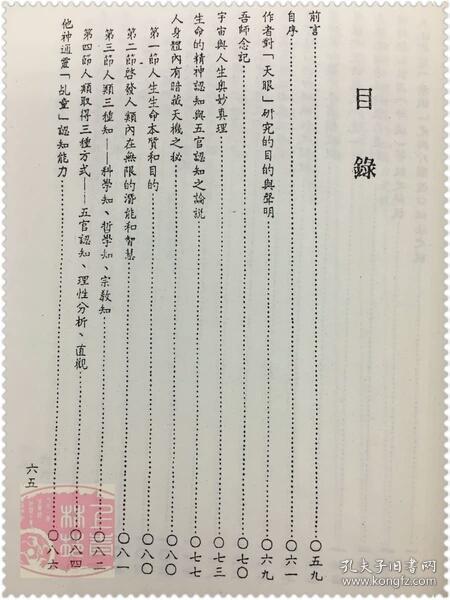 目錄
前言……〇五九
自序……〇六一
作者對「天眼」研究的目的與聲明……〇六九
吾師念記……〇七〇
宇宙與人生奧妙真理……〇七三
生命的精神認知與五官認知之論說……〇七七
人身體內有暗藏天機之秘……〇八〇
第一節人生生命本質和目的……〇八〇
第二節啓發人類內在無限的潛能和智慧……〇八一
第三節人類三種知——科學知、哲學知、宗教知……〇八二
第四節人類取得三種方式——五官認知、理性分析、直觀……〇八四
他神通靈「乩童」認知能力……〇八六
六五
孔夫子旧书网